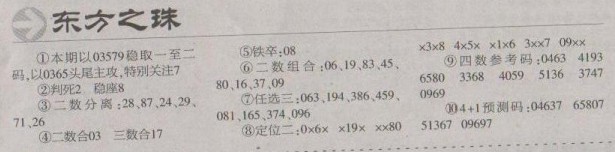 东方之珠
①本期以03579稳取一至二
码,以0365头尾主攻,特别关注7
②判死2 稳座8
③二数分离:28、87、24、29、
71、26
④二数合03 三数合17
⑤铁卒:08
⑥二数组合:06、19、83、45、
80、16、37、09
⑦任选三:063、194、386、459、
081、165、374、096
⑧定位二:0×6× ×19× ××80
×3×8 4×5× ×1×6 3××7 09××
⑨四数参考码:0463 4193
6580 3368 4059 5136 3747
0969
⑩4+1预测码:04637 65807
51367 09697